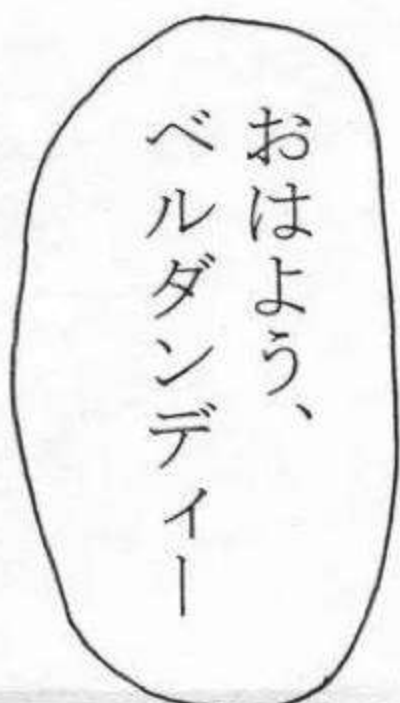 おはよう、
ベルダンディー